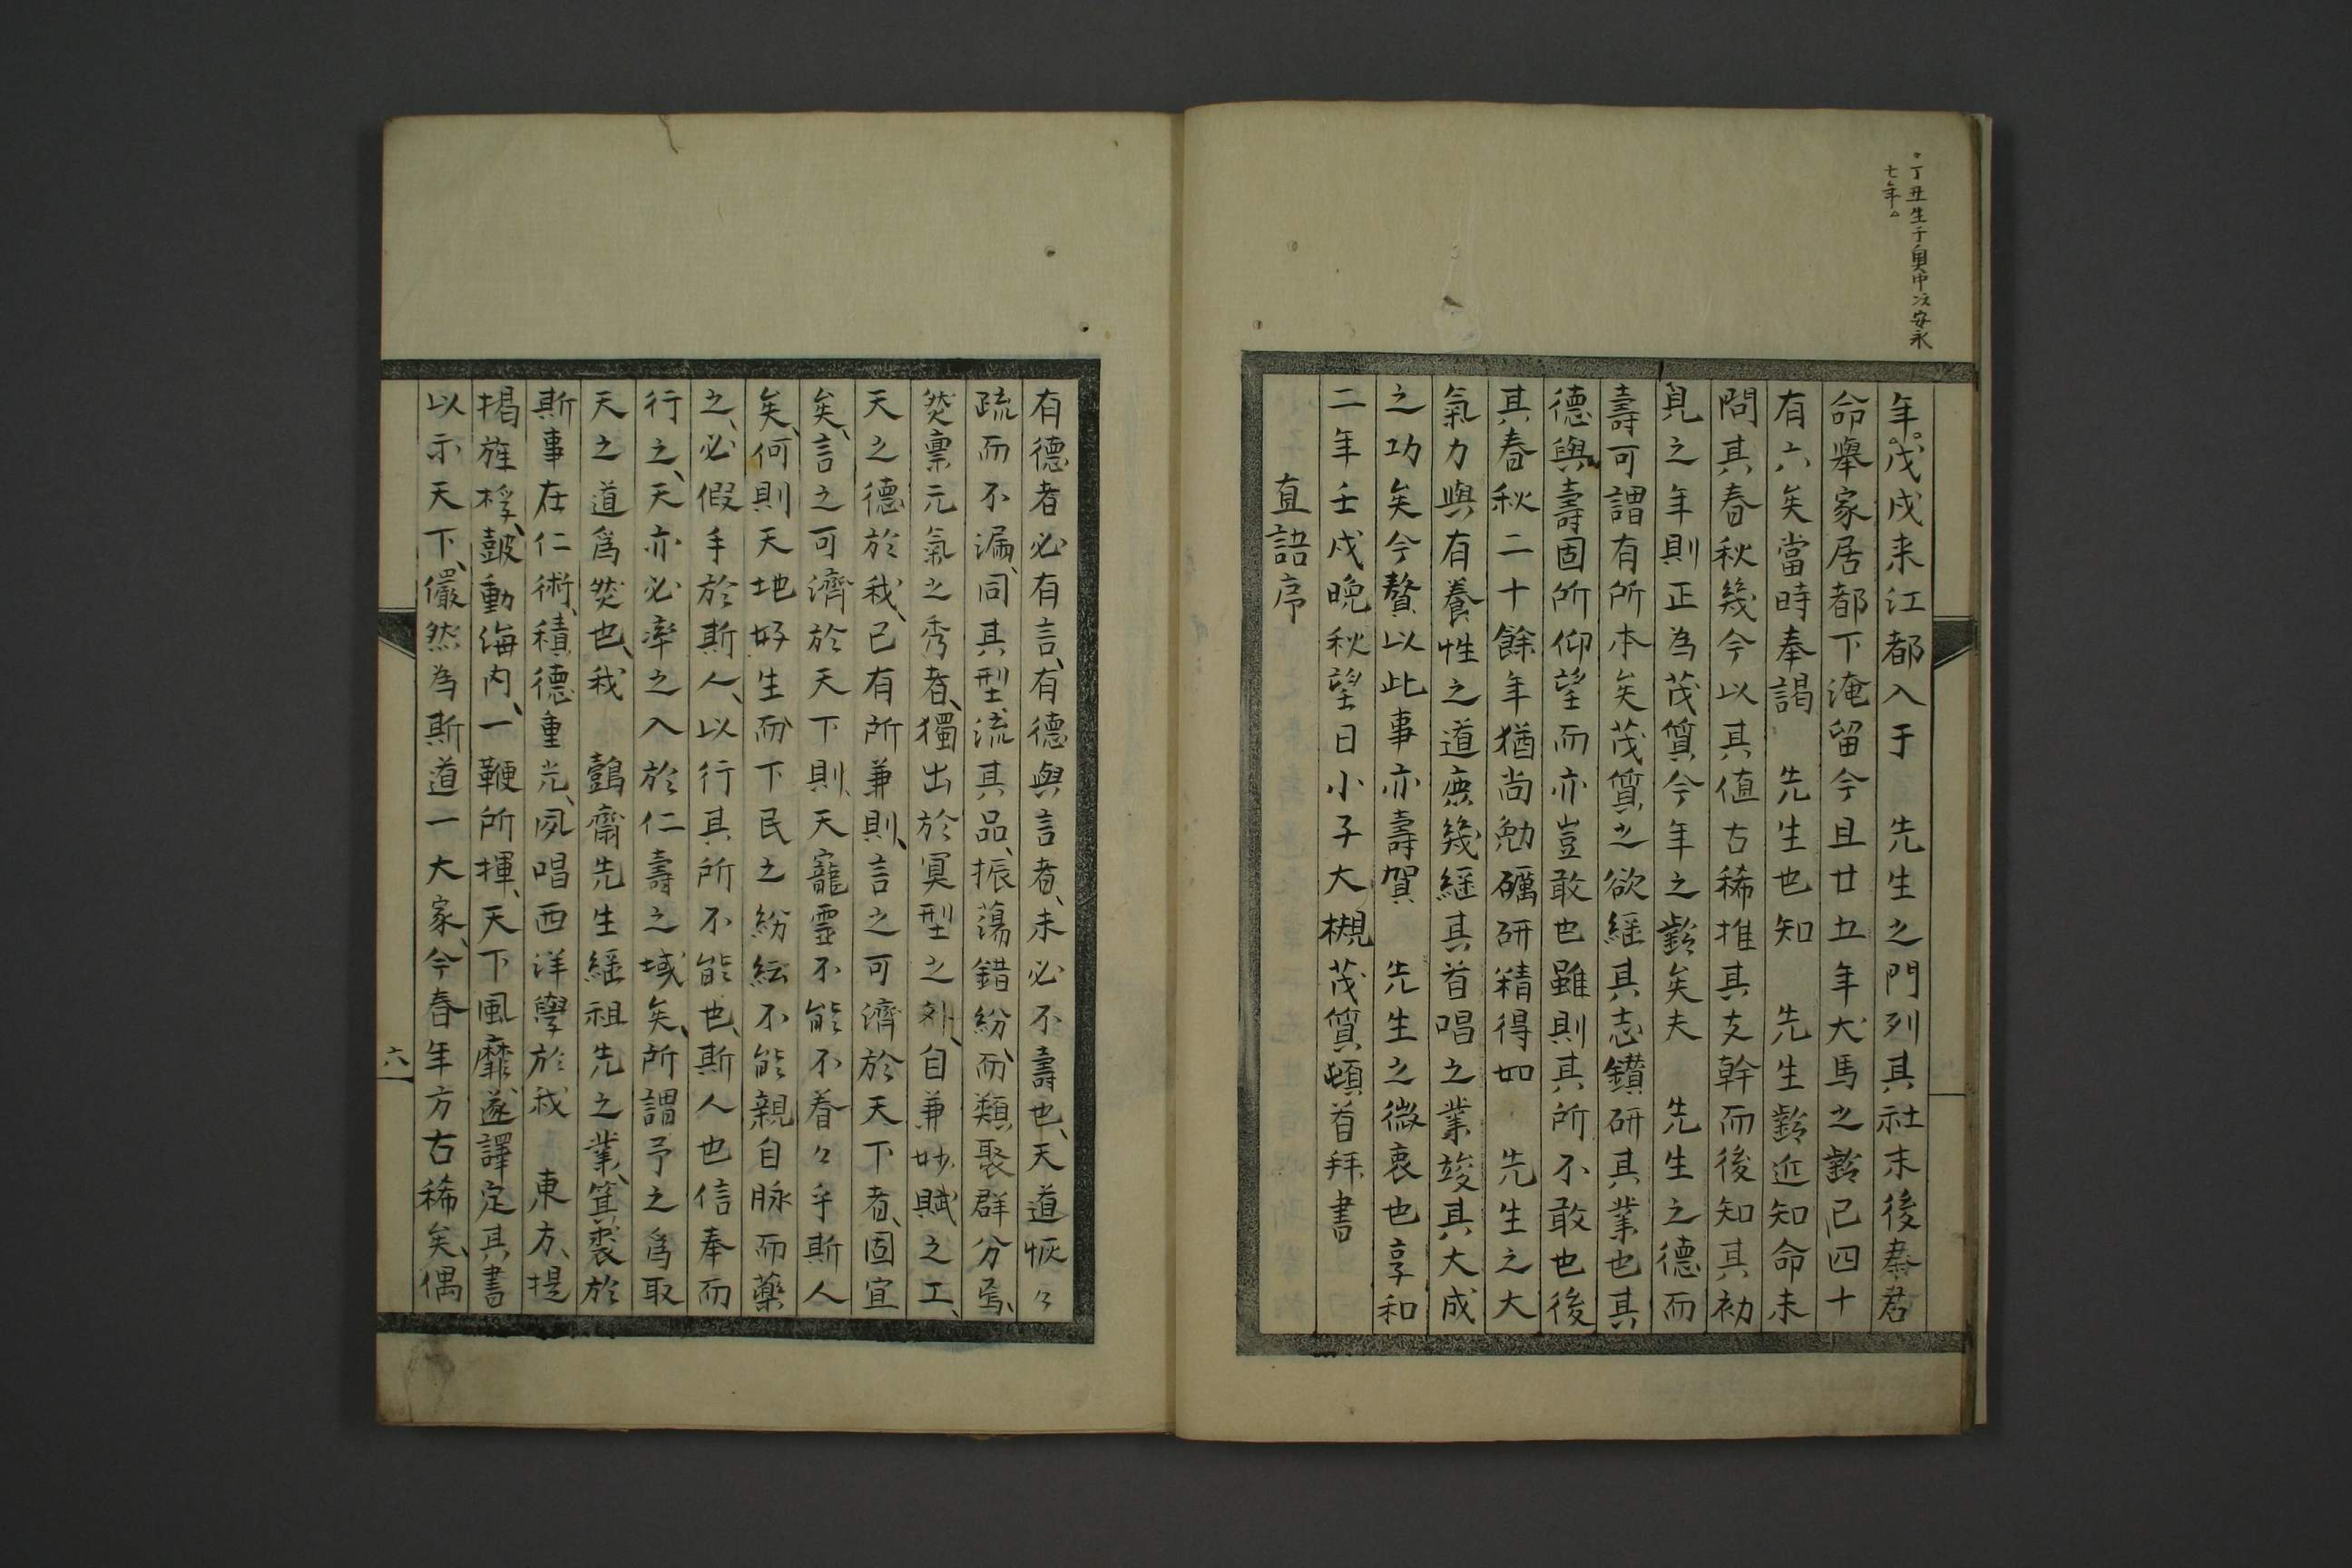 丁丑生于奥中次安永
七年
年戊戌来江都入于　先生之門列其社末後奉君
命舉家居都下淹留今且廿五年犬馬之齡已四十
有六矣當時奉謁　先生也知　先生齡近知命未
問其春秋幾今以其値古稀推其支幹而後知其初
見之年則正為茂質今年之齡矣夫　先生之德而
壽可謂有所本矣茂質之欲繼其志鑚研其業也其
德與壽固所仰望而亦豈敢也雖則其所不敢也後
其春秋二十餘年猶尚勉礪研精得如　先生之大
氣力與有養性之道庶幾繼其首唱之業竣其大成
之功矣今贅以此事亦壽賀　先生之微衷也享和
二年壬戌晚秋望日小子大槻茂質頓首拜書
直語序
有德者必有言、有德與言者、未必不壽也、天道恢々
疏而不漏、同其型、流其品、振蕩錯紛、而類聚群分焉、
然稟元氣之秀者、獨出於冥型之外、自兼妙賦之工、
天之德於我、已有所兼則、言之可濟於天下者、固宜
矣、言之可濟於天下則、天寵靈不能不眷々乎斯人
矣、何則天地好生而下民之紛紜不能親自脉而藥
之、必假手於斯人、以行其所不能也、斯人也信奉而
行之、天亦必率之入於仁壽之域矣、所謂予之為取
天之道爲然也、我　鷧齋先生繼祖先之業、箕裘於
斯事在仁術、積德重光、夙唱西洋學於我　東方、提
揭旌桴、鼓動海内、一鞭所揮、天下風靡、遂譯定其書
以示天下、儼然為斯道一大家、今春年方古稀矣、偶
六